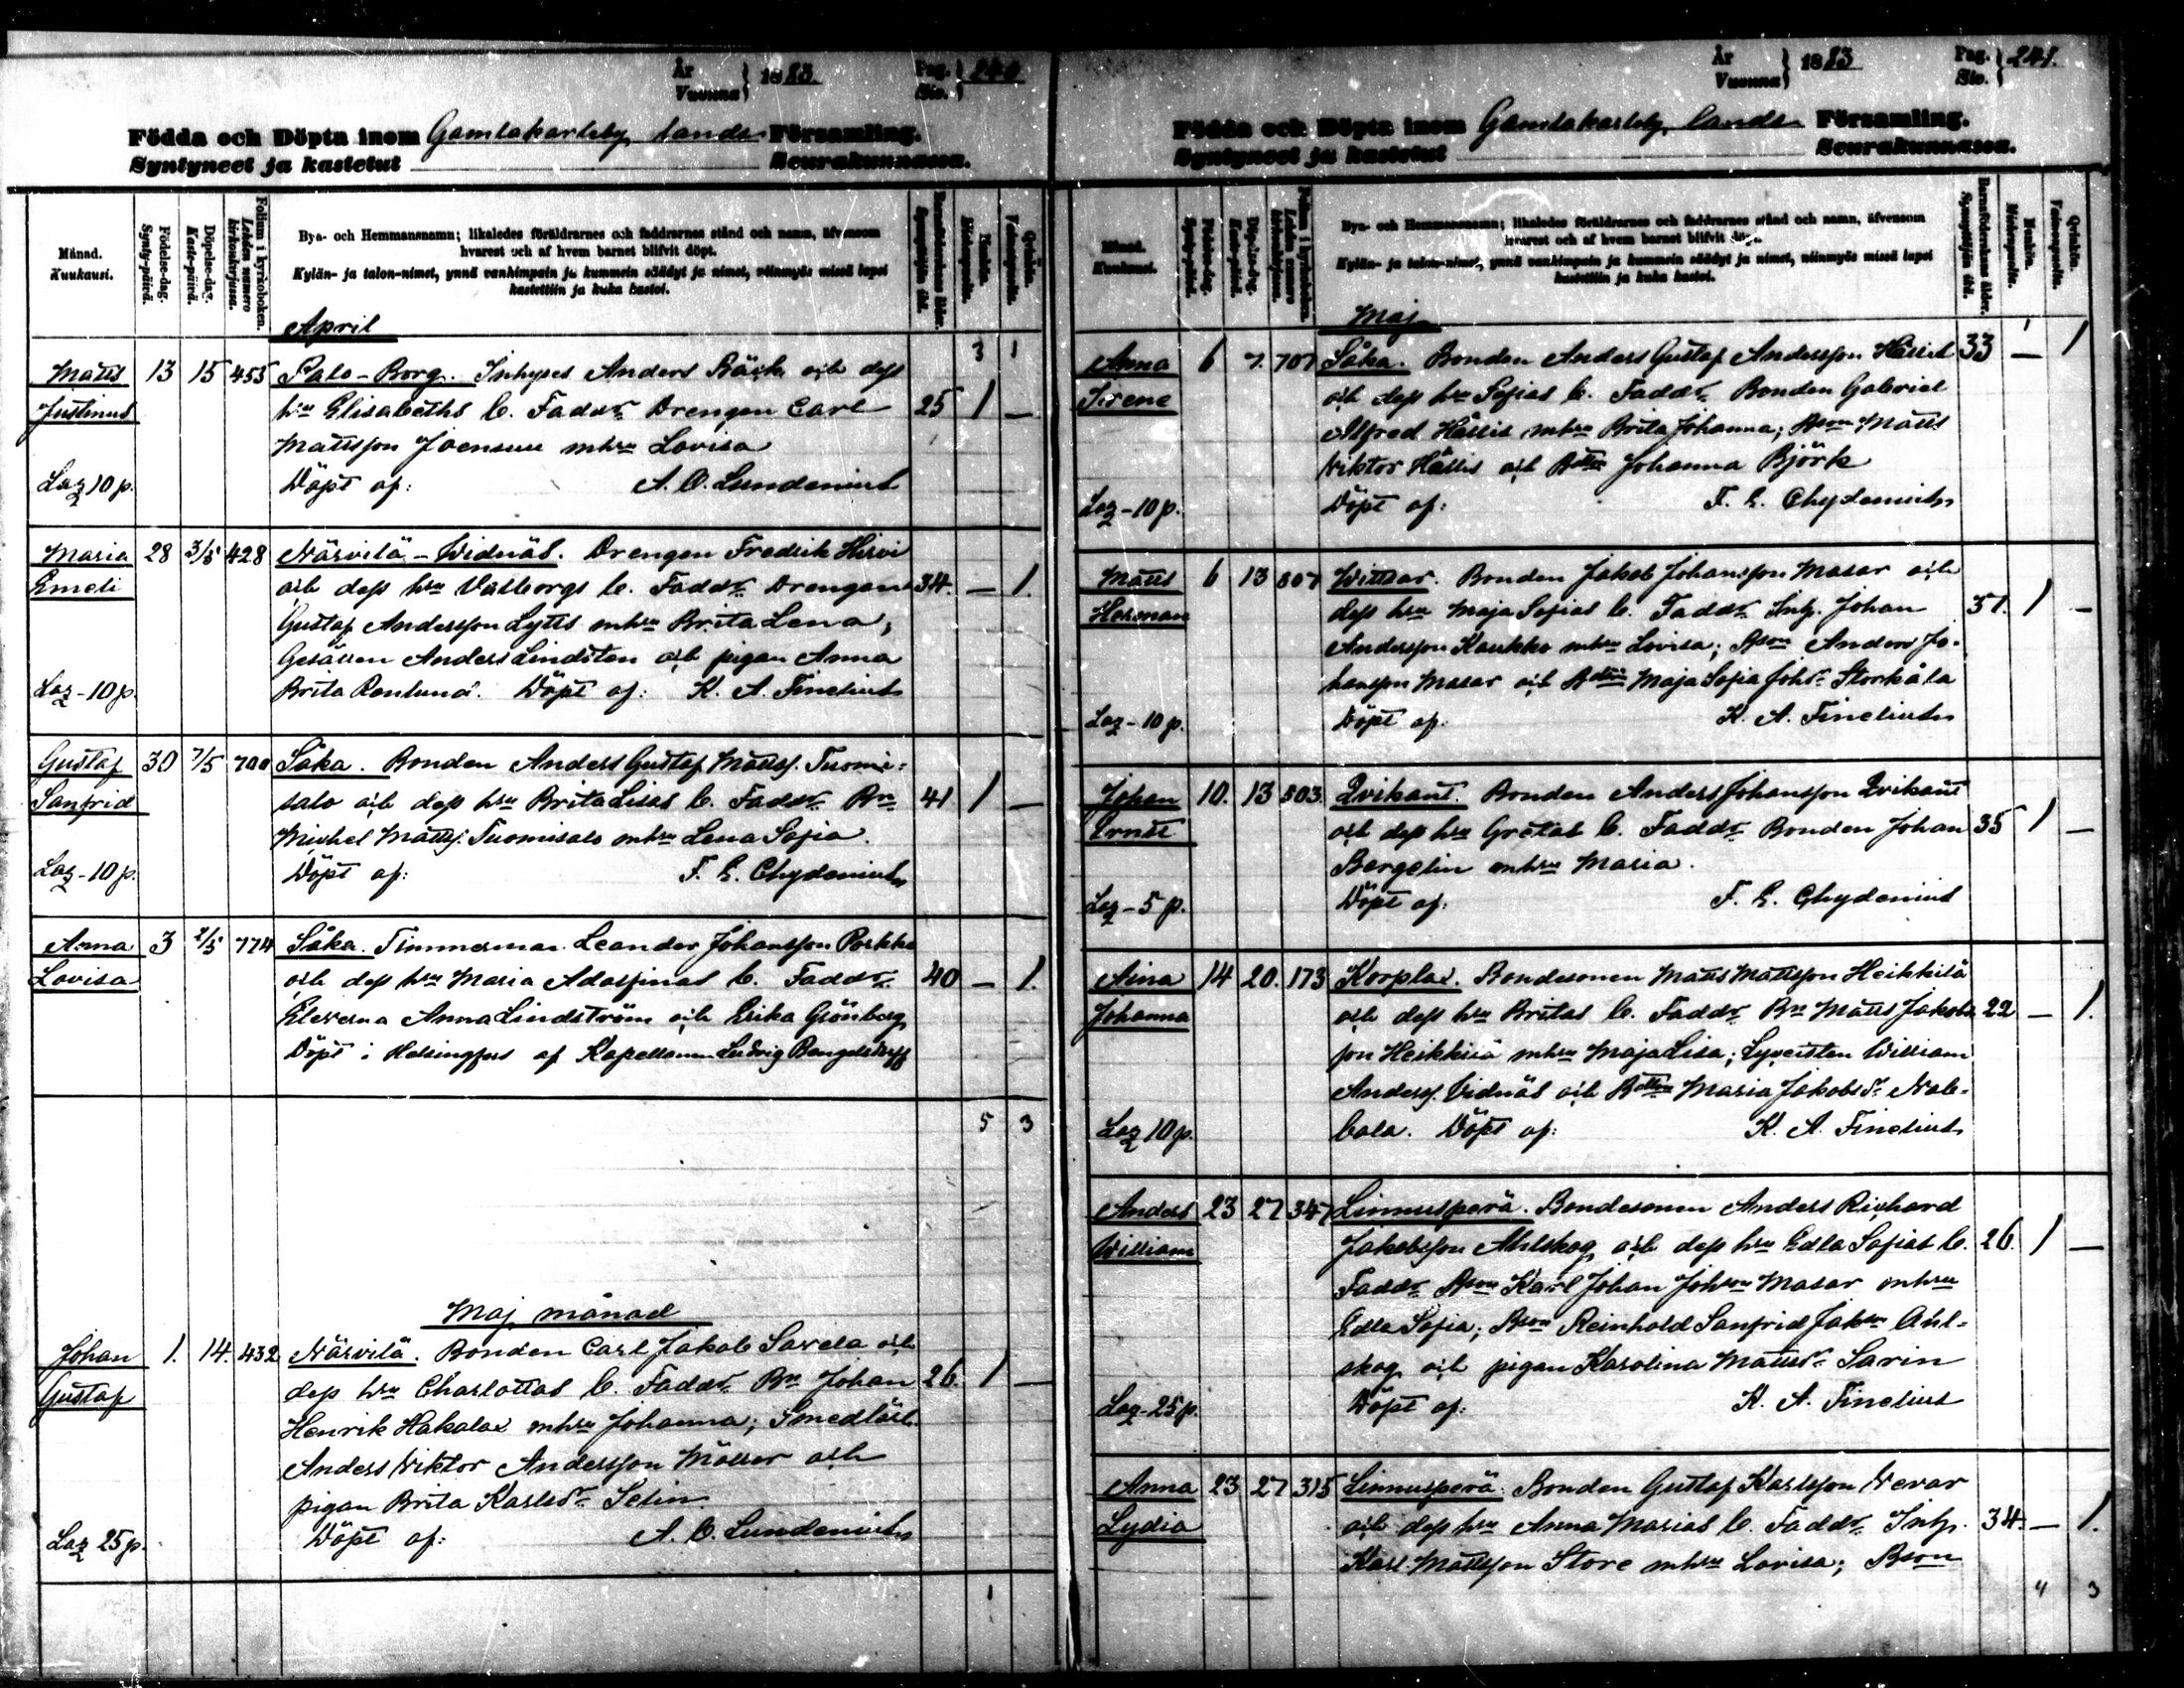 År
Vuonna } 1883. Pag.
Siv. } 240
Födda och Döpta inom Gamlakarleby lands Församling.
Syntyneet ja kastetut Seurakunnassa.
Månad.
Kuukausi.
Födelse-dag.
Synty-päivä.
Döpelse-dag.
Kaste-päivä.
Folium i kyrkoboken.
Lehden numero kirkonkirjassa.
Bya- och Hemmansnamn; likaledes föräldrarnes och faddrarnes stånd och namn, äfvensom
hvarest och af hvem barnet blifvit döpt.
Kylän- ja talon-nimet, ynnä vanhimpain ja kummein säädyt ja nimet, niinmyös missä lapsi
kastettiin ja kuka kastoi.
Barnaföderskans ålder.
Synnyttäjän ikä.
Mankön.
Miehenpuolta.
Qvinkön.
Vaimonpuolta.
April
3 1
Matts 13 15 455 Palo-Borg. Inhyses Anders Bäck och dess
Justinus hru Elisabeths b. Faddr Drengen Carl 25 1 —
Mattsson Joensuu mhru Lovisa
Laz 10 p. Döpt af: A. O. Lundenius
Maria 28 3/5 428 Närvilä-Widnäs. Drengen Fredrik Hirvi
Emeli och dess hru Valborgs b. Faddr Drengen 34. — 1.
Gustaf Andersson Lytts mhru Brita Lena;
Gesällen Anders Lindsten och pigan Anna
Laz-10 p. Brita Renlund. Döpt af: K. A. Finelius
Gustaf 30 7/5 700 Såka. Bonden Anders Gustaf Mattss. Tuomi-
Sanfrid salo och dess hru Brita Lisas b. Faddr Bn 41 1 —
Michel Mattss. Tuomisalo mhru Lena Sofia.
Laz-10 p. Döpt af: F. E. Chydenius
Anna 3 2/5 774 Såka. Timmerman Leander Johansson Porkka
Lovisa och dess hru Maria Adolfinas b. Faddr 40 — 1.
Eleverna Anna Lindström och Erika Grönberg
Döpt i Helsingfors af Kapellanen Ludvig Bengelsdorff
5 3
Maj månad
Johan 1. 14. 432 Närvilä. Bonden Carl Jakob Savela och
Gustaf dess hru Charlottas b. Faddr Bn Johan 26. 1 —
Henrik Hakalax mhru Johanna; Smedlärl.
Anders Viktor Andersson Möller och
pigan Brita Karlsdr Selin
Laz 25 p. Döpt af: A. O. Lundenius
1
År
Vuonna } 1883 Pag.
Siv. } 241.
Födda och Döpta inom Gamlakarleby lands Församling.
Syntyneet ja kastetut Seurakunnassa.
Månad.
Kuukausi.
Födelse-dag.
Synty-päivä.
Döpelse-dag.
Kaste-päivä.
Folium i kyrkoboken.
Lehden numero kirkonkirjassa.
Bya- och Hemmansnamn; likaledes föräldrarnes och faddrarnes stånd och namn, äfvensom
hvarest och af hvem barnet blifvit döpt.
Kylän- ja talon-nimet, ynnä vanhimpain ja kummein säädyt ja nimet, niinmyös missä lapsi
kastettiin ja kuka kastoi.
Barnaföderskans ålder.
Synnyttäjän ikä.
Mankön.
Miehenpuolta.
Qvinkön.
Vaimonpuolta.
Maj
1
Anna 6 7. 707 Såka. Bonden Anders Gustaf Andersson Hällis 33 — 1
Irene och dess hru Sofias b. Faddr Bonden Gabriel
Alfred Hällis mhru Brita Johanna; Bson Matts
Viktor Hällis och Bdttr Johanna Björk
Laz-10 p. Döpt af: F. E. Chydenius
Matts 6 13 507 Wittsar. Bonden Jakob Johansson Masar och
Herman dess hru Maja Sofias b. Faddr Inh. Johan 37. 1 —
Andersson Kaukko mhru Lovisa; Bson Anders Jo-
hansson Masar och Bdttr Maja Sofia Johsdr Storkåla
Laz-10 p. Döpt af. K. A. Finelius
Johan 10. 13 503. Qvikant. Bonden Anders Johansson Qvikant
Ernst och dess hru Gretas b. Faddr Bonden Johan 35 1 —
Bergelin mhru Maria.
Laz-5 p. Döpt af: F. E. Chydenius
Aina 14 20. 173 Korplax. Bondesonen Matts Mattsson Heikkilä
Johanna och dess hru Britas b. Faddr Bn Matts Jakobs 22 — 1.
son Heikkilä mhru Maja Lisa; Lyceisten William
Anderss. Vidnäs och Bdttr Maria Jakobsdr Nab-
Laz 10 p. bala. Döpt af: K. A. Finelius
Anders 23 27 347 Linnusperä. Bondesonen Anders Richard
William Jakobsson Ahlskog och dess hru Edla Sofias b. 26. 1 —
Faddr Bson Karl Johan Johson Masar mhru
Edla Sofia; Bson Reinhold Sanfrid Jakson Ahl-
skog och pigan Karolina Mattsdr Sarin
Laz-25 p. Döpt af: K. A. Finelius
Anna 23 27 315 Linnusperä. Bonden Gustaf Karlsson Wevar
Lydia och dess hru Anna Marias b. Faddr Inh. 34. — 1.
Karl Mattsson Store mhru Lovisa; Bson
4 3